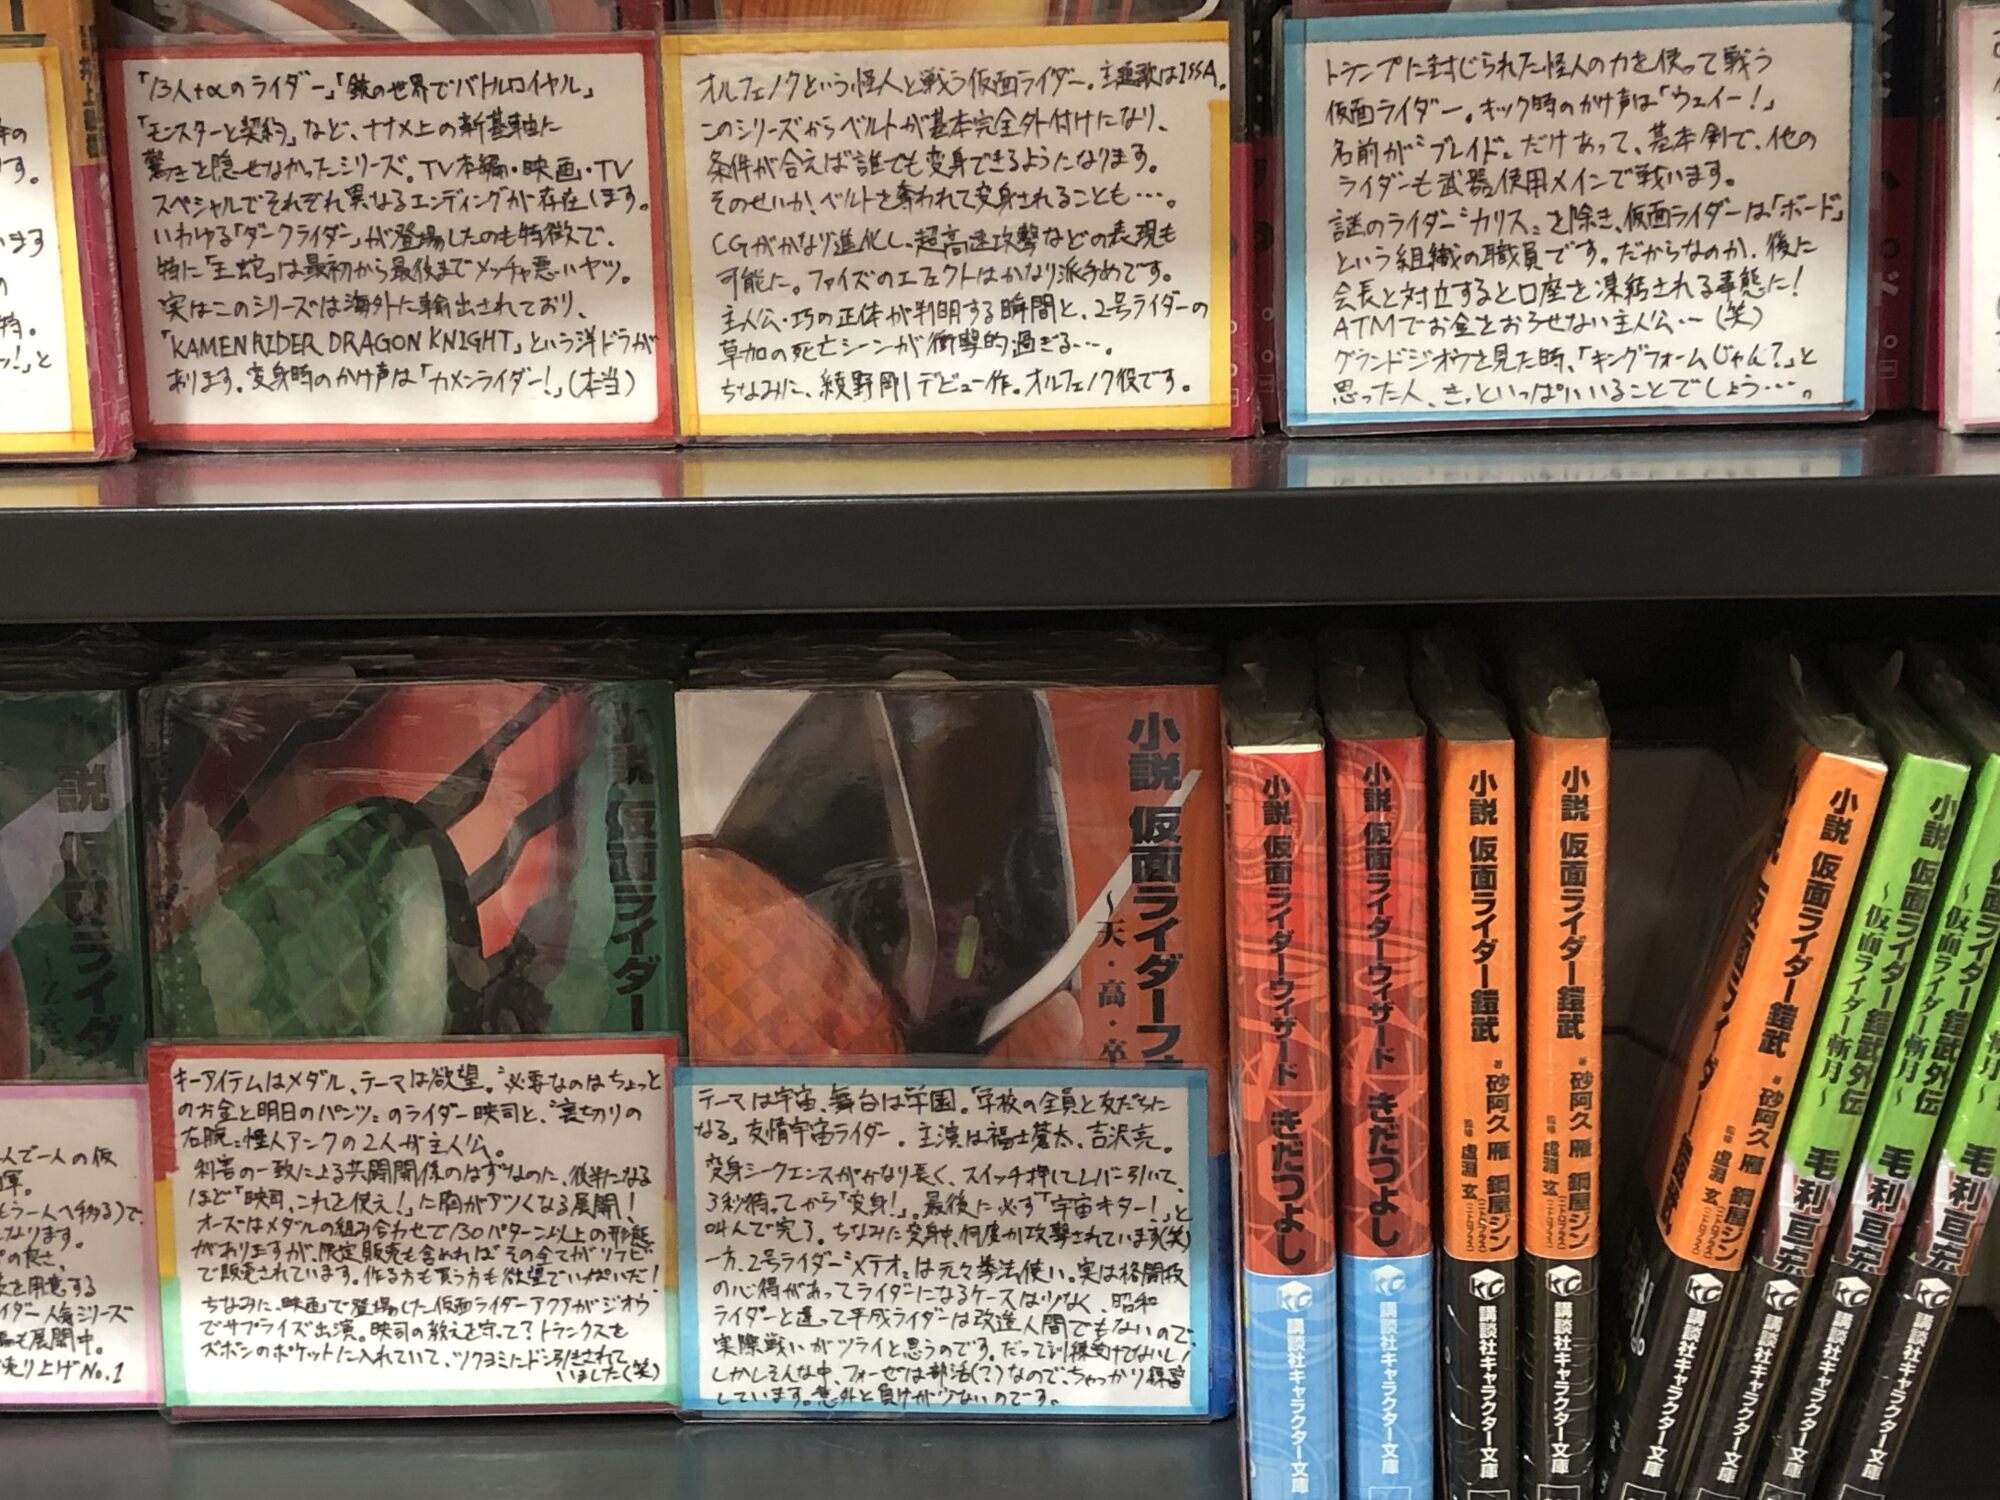 「13人+αのライダー」「鏡の世界でバトルロイヤル」
「モンスターと契約」など、ナナメ上の新基軸に
驚きを隠せなかったシリーズ。TV本編・映画・TV
スペシャルでそれぞれ異なるエンディングが存在します。
いわゆる「ダークライダー」が登場したのも特徴で、
特に「王蛇」は最初から最後までメッチャ悪いヤツ。
実はこのシリーズは海外に輸出されており、
「KAMEN RIDER DRAGON KNIGHT」という洋ドラが
あります。変身時のかけ声は「カメンライダー!」(本当)
オルフェノクという怪人と戦う仮面ライダー。主題歌はISSA。
このシリーズからベルトが基本完全外付けになり、
条件が合えば誰でも変身できるようになります。
そのせいか、ベルトを奪われて変身されることも…。
CGがかなり進化し、超高速攻撃などの表現も
可能に。ファイズのエフェクトはかなり派手めです。
主人公・巧の正体が判明する瞬間と、2号ライダーの
草加の死亡シーンが衝撃的過ぎる…。
ちなみに、綾野剛デビュー作。オルフェノク役です。
トランプに封じられた怪人の力を使って戦う
仮面ライダー。キック時のかけ声は「ウェイー!」
名前が〝ブレイド〟だけあって、基本剣で、他の
ライダーも武器使用メインで戦います。
謎のライダー〝カリス〟を除き、仮面ライダーは「ボード」
という組織の職員です。だからなのか、後に
会長と対立すると口座を凍結される事態に!
ATMでお金をおろせない主人公…(笑)
グランドジオウを見た時、「キングフォームじゃん?」と
思った人、きっといっぱいいることでしょう…。
小説 仮面ライダー
小説 仮面ライダー
小説 仮面ライダーフォ
〜天・高・卒
小説 仮面ライダーウィザード きだつよし
講談社キャラクター文庫
小説 仮面ライダーウィザード きだつよし
講談社キャラクター文庫
小説 仮面ライダー鎧武 著 砂阿久 雁 鋼屋ジン
監修 虚淵 玄(ニトロプラス)
講談社キャラクター文庫
小説 仮面ライダー鎧武 著 砂阿久 雁 鋼屋ジン
監修 虚淵 玄(ニトロプラス)
講談社キャラクター文庫
小説 仮面ライダー鎧武 著 砂阿久 雁 鋼屋ジン
監修 虚淵 玄(ニトロプラス)
講談社キャラクター文庫
小説 仮面ライダー鎧武外伝
〜仮面ライダー斬月〜 毛利亘宏
講談社キャラクター文庫
仮面ライダー鎧武外伝
〜仮面ライダー斬月〜 毛利亘宏
講談社キャラクター文庫
キーアイテムはメダル、テーマは欲望。〝必要なのはちょっと
のお金と明日のパンツ〟のライダー映司と、〝裏切りの
右腕〟怪人アンクの2人が主人公。
利害の一致による共闘関係のはずなのに、後半になる
ほど「映司、これを使え!」に胸がアツくなる展開!
オーズはメダルの組み合わせで130パターン以上の形態
がありますが、限定販売も含めればその全てがソフビ
で販売されています。作る方も買う方も欲望でいっぱいだ!
ちなみに、映画で登場した仮面ライダーアクアがジオウ
でサプライズ出演。映司の教えを守って?トランクスを
ズボンのポケットに入れていて、ツクヨミにドン引きされて
いました(笑)
テーマは宇宙、舞台は学園。「学校の全員と友だちに
なる」友情宇宙ライダー。主演は福士蒼太、吉沢亮。
変身シークエンスがかなり長く、スイッチ押してレバー引いて、
3秒待ってから「変身!」。最後に必ず「宇宙キター!」と
叫んで完了。ちなみに変身中、何度か攻撃されています(笑)
一方、2号ライダー〝メテオ〟は元々拳法使い。実は格闘技
の心得があってライダーになるケースは少なく、昭和
ライダーと違って平成ライダーは改造人間でもないので
実際戦いがツライと思うのです。だって訓練受けてないし!
しかしそんな中、フォーゼは部活(?)なので、ちゃっかり練習
しています。意外と負けが少ないのです。
人で一人の仮
もう一人へ移る)で、
なります。
の良さ、
を用意する
イダー人気シリーズ
も展開中。
売り上げNo.1